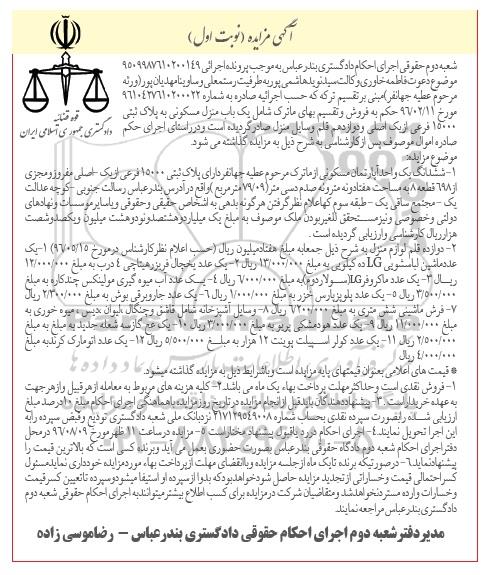 آگهی مزایده (نوبت اول)
قوه قضائیه
دادگستری جمهوری اسلامی ایران
شعبه دوم حقوقی اجرای احکام دادگستری بندرعباس به موجب پرونده اجرائی ۹۵۰۹۹۸۷۶۱۰۲۰۰۱۴۹
موضوع دعوت فاطمه خاوری وکالت سید نوید هاشمی پور به طرفیت رستم علی و ساوینا مهدیان پور (ورثه
مرحوم عطیه جهانفر) مبنی بر تقسیم ترکه که حسب اجرائیه صادره به شماره ۹۶۱۰۴۲۷۶۱۰۲۰۰۰۲۲
مورخ ۹۶/۰۲/۱۱ حکم به فروش و تقسیم بهای ماترک شامل یک باب منزل مسکونی به پلاک ثبتی
۱۵۰۰۰ فرعی از یک اصلی و دوازده قلم وسایل منزل صادر گردیده است و در راستای اجرای حکم
صادره اموال موصوف پس از کارشناسی به شرح ذیل به مزایده گذاشته می شود.
موضوع مزایده:
۱- ششدانگ یک واحد آپارتمان مسکونی از ماترک مرحوم عطیه جهانفر دارای پلاک ثبتی ۱۵۰۰۰ فرعی از یک - اصلی مفروز و مجزی
از ۶۹۸ قطعه ۸ به مساحت هفتاد و نه متر و نه صدم دسی متر (۷۹/۰۹ متر مربع) واقع در آدرس بندرعباس رسالت جنوبی - کوچه عدالت
یک - مجتمع ساقی یک - طبقه سوم که اعلام نظر گرفتن هرگونه بدهی به اشخاص حقیقی و حقوقی و یا سایر موسسات و نهادهای
دولتی و خصوصی و نیز مستحق للغیر بودن ملک موصوف به مبلغ یک میلیارد و هشتصد و نود و هشت میلیون و یکصد و شصت
هزار ریال کارشناسی و ارزیابی گردیده است.
۲- دوازده قلم لوازم منزل به شرح ذیل جمعا به مبلغ هفتاد میلیون ریال (حسب اعلام نظر کارشناس در مورخ ۹۶/۰۵/۱۵) ۱- یک
عدد ماشین لباسشویی LG ده کیلویی به مبلغ ۱۳/۰۰۰/۰۰۰ ریال ۲- یک عدد یخچال فریزر هیتاچی ۴ درب به مبلغ ۱۲/۰۰۰/۰۰۰
ریال ۳- یک عدد ماکروفر LG (سولاردو) به مبلغ ۶/۰۰۰/۰۰۰ ریال ۴- یک عدد آب میوه گیری مولینکس چندکاره به مبلغ
۳/۵۰۰/۰۰۰ ریال ۵- یک عدد پلوپز پارس خزر به مبلغ ۱/۰۰۰/۰۰۰ ریال ۶- یک عدد جاروبرقی بوش به مبلغ ۲/۳۰۰/۰۰۰ ریال
۷- فرش ماشینی شش متری به مبلغ ۶/۲۰۰/۰۰۰ ریال ۸- وسایل آشپزخانه شامل قاشق و چنگال، لیوان، دیس و میوه خوری به
مبلغ ۱۱/۰۰۰/۰۰۰ ریال ۹- یک عدد هود مشکی پریز به مبلغ ۳/۰۰۰/۰۰۰ ریال ۱۰- یک عدد گاز سه شعله جدید به مبلغ به مبلغ
۲/۵۰۰/۰۰۰ ریال ۱۱- یک عدد کولر اسپیلت پوینت ۱۲ هزار به مبلغ ۵/۵۰۰/۰۰۰ ریال ۱۲- یک عدد اتو مارک کرتد به مبلغ
۴/۰۰۰/۰۰۰ ریال
* قیمت های اعلامی بعنوان قیمتهای پایه مزایده است و با شرایط ذیل به مزایده گذاشته میشود.
۱- فروش نقدی است و حداکثر مهلت پرداخت بهاء یک ماه می باشد. ۲- کلیه هزینه های مربوط به معامله از هر قبیل و از هر جهت
به عهده خریدار است. ۳- پیشنهاد دهندگان باید قبل از انجام مزایده در تاریخ روز مزایده با هماهنگی اجرای احکام مبلغ ۱۰ درصد مبلغ
ارزیابی شده را بصورت سپرده نقدی بحساب شماره ۲۱۷۱۲۹۵۴۹۰۰۸ نزد بانک ملی شعبه دادگستری تودیع و فیش سپرده را به
این اجرا تحویل نمایند. ۴- اجرای احکام در رد یا قبول پیشنهاد مختار است. ۵- مزایده در ساعت ۱۱ ظهر مورخ ۹۶/۰۸/۰۹ در محل
دفتر اجرای احکام شعبه دوم دادگاه حقوقی بندرعباس بصورت حضوری بعمل می آید و برنده کسی است که بالاترین قیمت را
پیشنهاد نماید. ۶- در صورتیکه برنده تا یک ماه از جلسه مزایده و با انقضای مهلت از پرداخت بهاء مورد مزایده خودداری نماید مسئول
کسر احتمالی قیمت و خساراتی از تجدید مزایده حاصل شود خواهد بود که بدوا از سپرده او استیفا میشود و سپرده تا تعیین کسر قیمت
و خسارات وارده مسترد نخواهد شد و متقاضیان شرکت در مزایده برای کسب اطلاع بیشتر میتوانند به اجرای احکام حقوقی شعبه دوم
دادگستری بندرعباس مراجعه نمایند.
مدیر دفتر شعبه دوم اجرای احکام حقوقی دادگستری بندرعباس - رضا موسی زاده